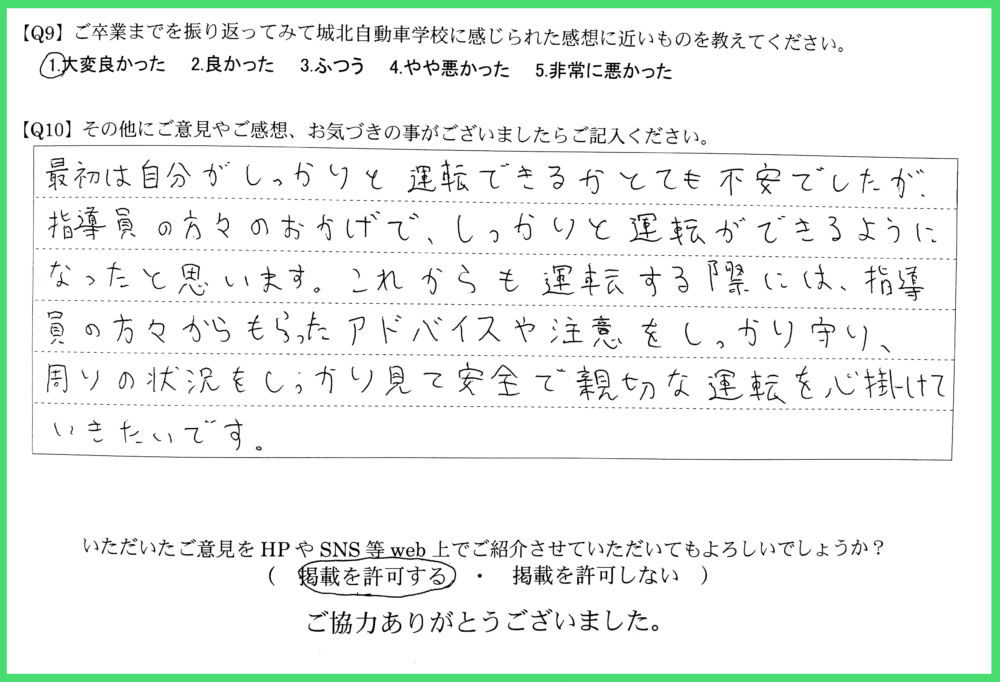 【Q9】ご卒業までを振り返ってみて城北自動車学校に感じられた感想に近いものを教えてください。
1.大変良かった 2.良かった 3.ふつう 4.やや悪かった 5.非常に悪かった
【Q10】その他にご意見やご感想、お気づきの事がございましたらご記入ください。
最初は自分がしっかりと運転できるかとても不安でしたが、
指導員の方々のおかげで、しっかりと運転ができるように
なったと思います。これからも運転する際には、指導
員の方々からもらったアドバイスや注意をしっかり守り、
周りの状況をしっかり見て安全で親切な運転を心掛けて
いきたいです。
いただいたご意見をHPやSNS等web上でご紹介させていただいてもよろしいでしょうか？
（ 掲載を許可する ・ 掲載を許可しない ）
ご協力ありがとうございました。